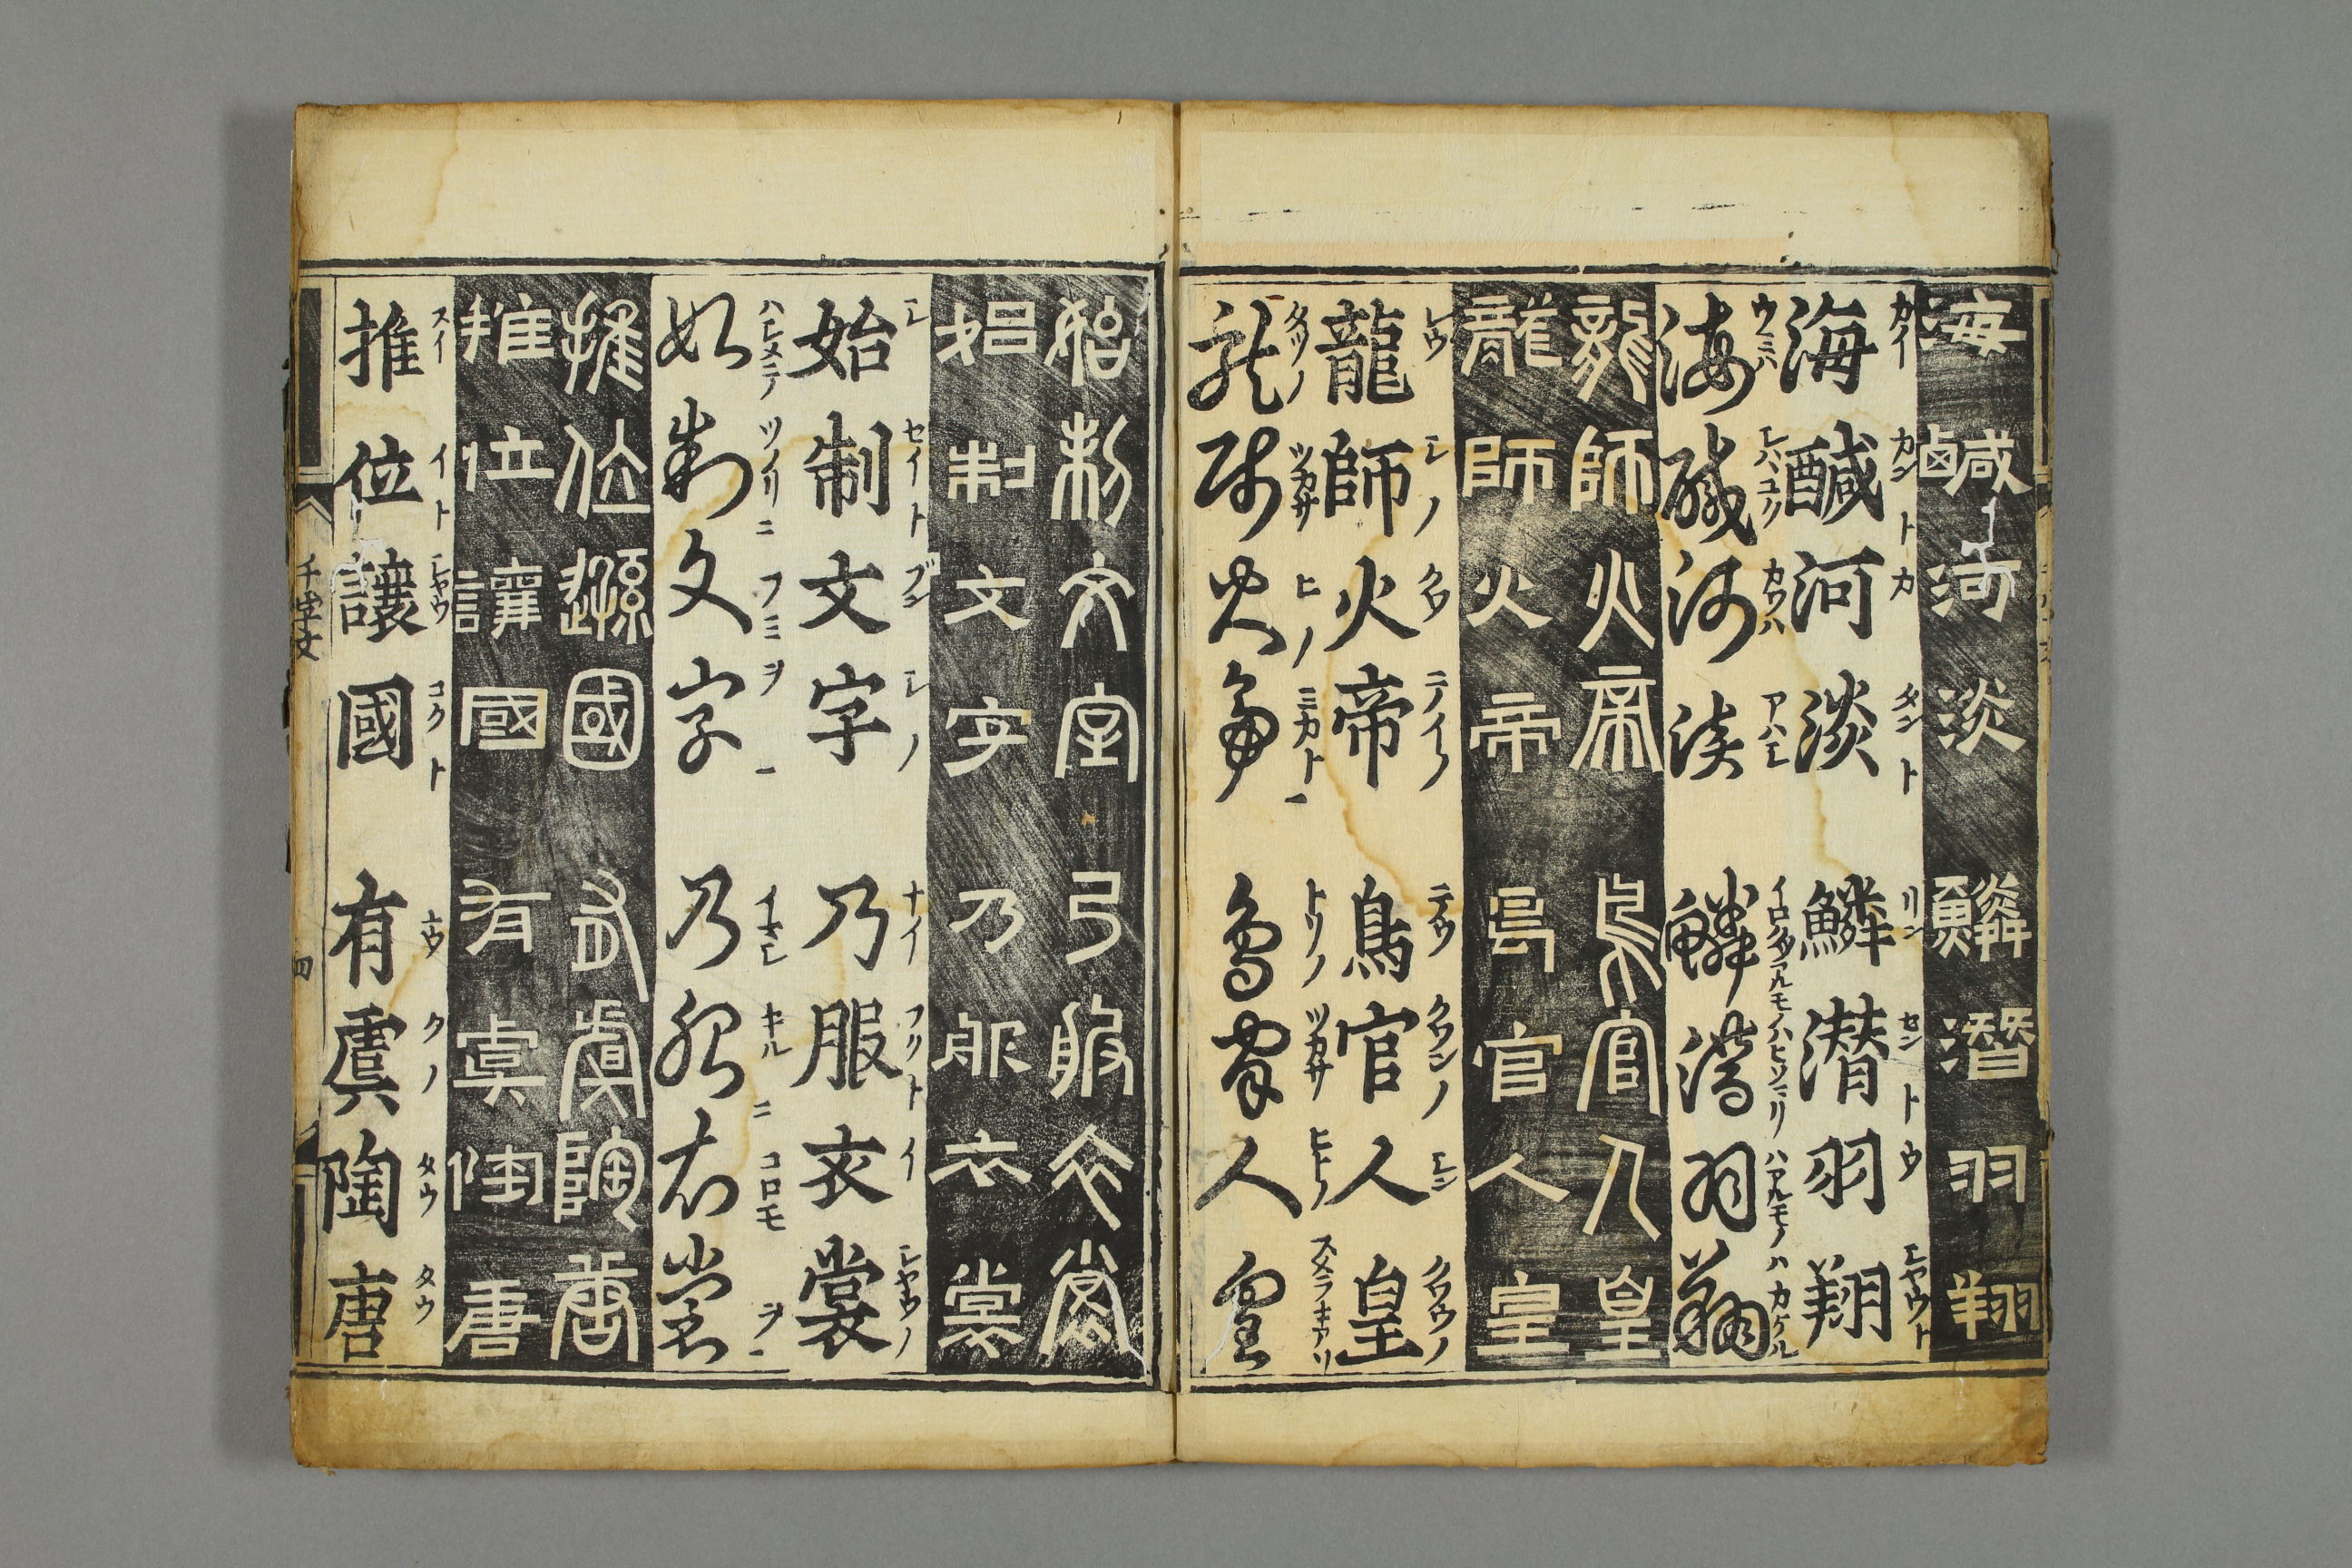 海鹹河淡 鱗潛羽翔
カイ カントカ タント リン セントウ シヤウト
海醎河淡 鱗潜羽翔
ウミハ シハハユク カウハ アハシ イロクヅアルモノハヒソミリ ハアルモノハカケル
海鹹河淡 鱗潜羽翔
龍師火帝 鳥官人皇
龍師火帝 鳥官人皇
レウ シノ クワ テイノ テウ クワンノ シン クワウノ
龍師火帝 鳥官人皇
タツノ ツカサ ヒノ ミカト トリノ ツカサ ヒトノ スメラキアリ
龍師火帝 鳥官人皇
始制文字 乃服衣裳
始制文字 乃服衣裳
シ セイト ブン シノ ナイ フクトイ シヤウノ
始制文字 乃服衣裳
ハシメテ ツクリ ニ フミヲ イマシ キルニ コロモヲ
始制文字 乃服衣裳
推位遜國 有虞陶唐
推位讓國 有虞陶唐
スイ イト シヤウ コクト ユウ クノ タウ タウ
推位讓國 有虞陶唐
千字文 四